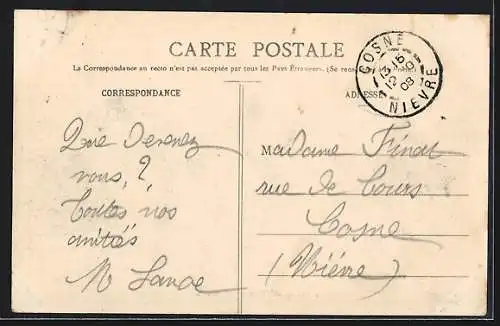 CARTE POSTALE
La Correspondance au recto n'est pas acceptée par tous les Pays Étrangers. (Se
CORRESPONDANCE
ADRESSE
COSNE
NIEVRE
Que devenez
vous, ?
Toutes nos
amitiés
Madame
rue de Cours
Cosne
(Nièvre)